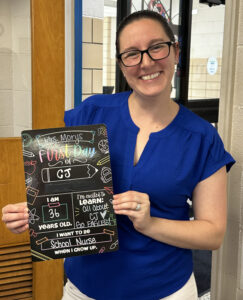 Mrs. Mary's
First Day
of
CJ
I AM
36
YEARS OLD.
I'm excited to
LEARN:
All about
CJ
Go Falcons!
I WANT TO BE
School Nurse
WHEN I GROW UP.